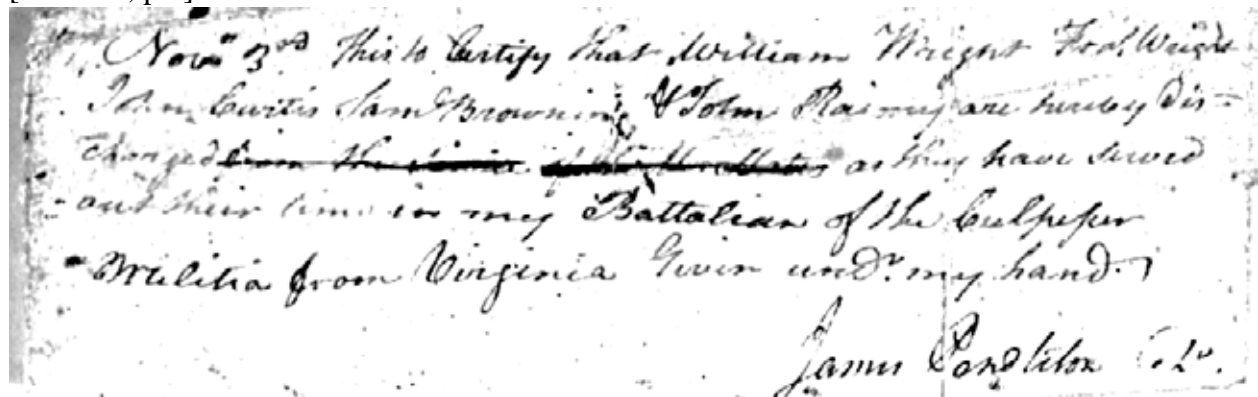 Novr 3rd this to Certify that William Wright Wright
John Curtis Saml Browning & John Rainey are hereby dis=
charged as they have served
out their time in my Battalian of the Culpeper
Militia from Virginia Given undr my hand
James Pendleton Colo.